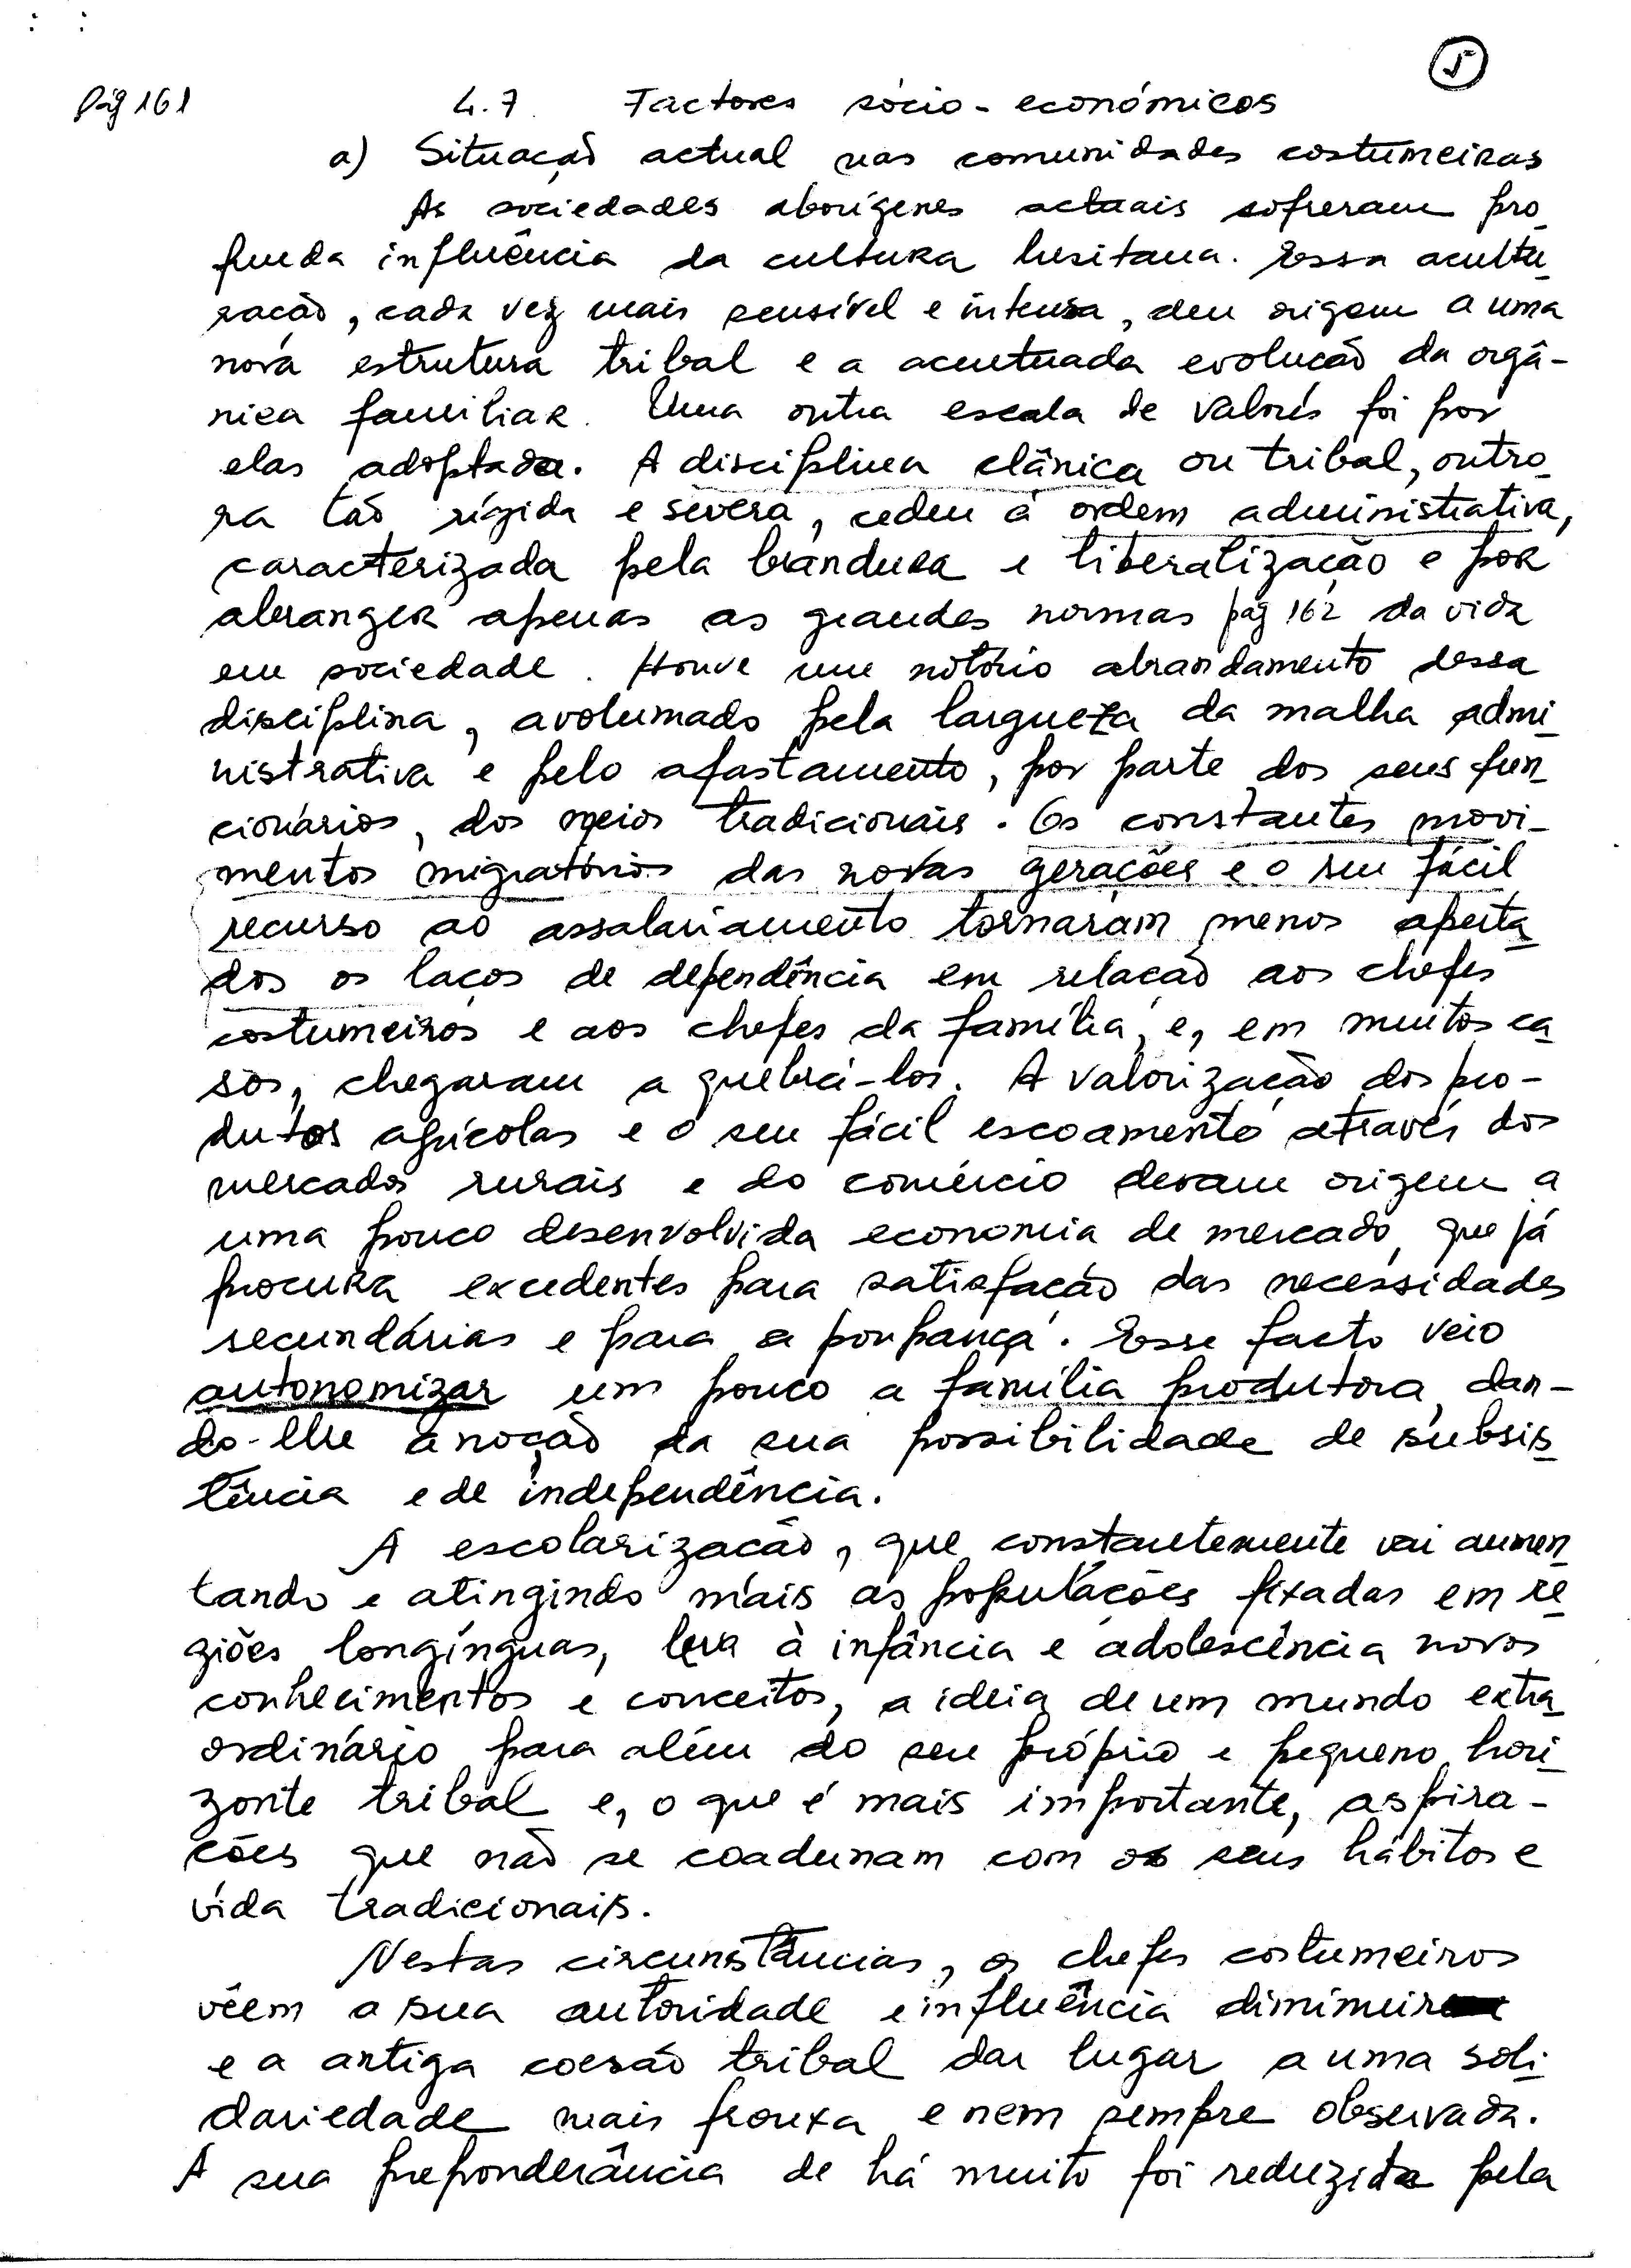 5
pág 161 4.7 Factores sócio-económicos
a) Situação actual nas comunidades costumeiras
As sociedades aborígenes actuais sofreram pro
funda influência da cultura lusitana. Essa acultu
ração, cada vez mais sensível e intensa, deu origem a uma
nova estrutura tribal e a acentuada evolução da orgâ-
nica familiar. Uma outra escala de valores foi por
elas adoptada. A disciplina clânica ou tribal, outro
ra tão rígida e severa, cedeu à ordem administrativa,
caracterizada pela brandura e liberalização e por
abranger apenas as grandes normas pág 162 da vida
em sociedade. Houve um notório abrandamento dessa
disciplina, avolumado pela largueza da malha admi
nistrativa e pelo afastamento, por parte dos seus fun
cionários, dos meios tradicionais. Os constantes movi-
mentos migratórios das novas gerações e o seu fácil
recurso ao assalariamento tornaram menos aperta
dos os laços de dependência em relação aos chefes
costumeiros e aos chefes da família, e, em muitos ca
sos, chegaram a quebrá-los. A valorização dos pro-
dutos agrícolas e o seu fácil escoamento através dos
mercados rurais e do comércio deram origem a
uma pouco desenvolvida economia de mercado, que já
procura excedentes para satisfação das necessidades
secundárias e para a poupança. Esse facto veio
autonomizar um pouco a família produtora, dan-
do-lhe a noção da sua possibilidade de subsis
tência e de independência.
A escolarização, que constantemente vai aumen
tando e atingindo mais as populações fixadas em re
giões longínquas, leva à infância e adolescência novos
conhecimentos e conceitos, a ideia de um mundo extra
ordinário para além do seu próprio e pequeno hori
zonte tribal e, o que é mais importante, aspira-
ções que não se coadunam com os seus hábitos e
vida tradicionais.
Nestas circunstâncias, os chefes costumeiros
vêem a sua autoridade e influência diminuir
e a antiga coesão tribal dar lugar a uma soli
dariedade mais frouxa e nem sempre observada.
A sua preponderância de há muito foi reduzida pela